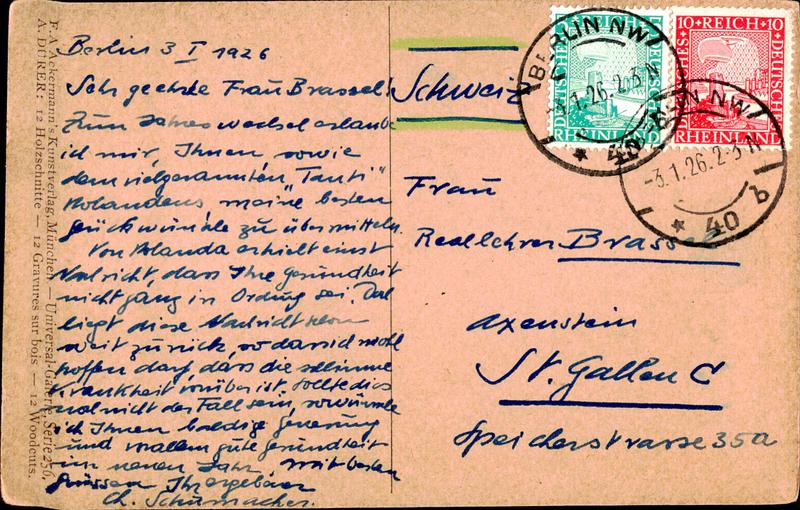 Berlin 3 I 1926
Sehr geehrte Frau Brassel!
Zum Jahreswechsel erlaube
ich mir, Ihnen, sowie
dem vielgenannten "Tanti"
Yolandens, meine besten
Glückwünsche zu übermitteln.
Von Yolanda erhielt einst
Nachricht, dass Ihre Gesundheit
nicht ganz in Ordnung sei. Da
liegt diese Nachricht schon
weit zurück, so dass ich wohl
hoffen darf, dass die schlimme
Krankheit vorüber ist. Sollte dies
noch nicht der Fall sein, so wünsche
ich Ihnen baldige Genesung
und vor allem gute Gesundheit
im neuen Jahr. Mit besten
Grüssen Ihr ergebener
Ch. Schumacher.
F. A. Ackermann's Kunstverlag, München — Universal-Galerie, Serie 256.
A. DÜRER: 12 Holzschnitte — 12 Gravures sur bois — 12 Woodcuts.
Schweiz
Frau
Reallehrer Brassel
Axenstein
St. Gallen C
Speicherstrasse 35a
DEUTSCHES REICH
RHEINLAND
10 REICH 10
DEUTSCHES
RHEINLAND
BERLIN NW
-3.1.26.2-3 N
* 40
BERLIN NW
-3.1.26.2-3 N
* 40 b